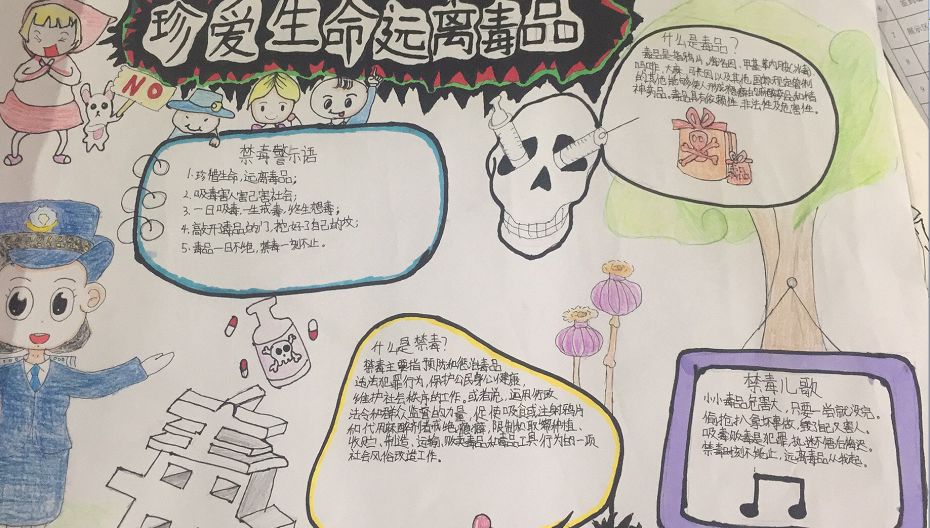 珍爱生命远离毒品
NO
禁毒警示语
1.珍惜生命,远离毒品;
2.吸毒害人害己害社会;
3.一日吸毒,一生戒毒,终生想毒;
4.敲开毒品的门,挖好了自己的坟;
5.毒品一日不绝,禁毒一刻不止。
什么是毒品?
毒品是指鸦片,海洛因,甲基苯丙胺(冰毒)
吗啡、大麻、可卡因以及其他,国家规定管制
的其他能够使人形成瘾癖的麻醉药品和精
神药品。毒品具有依赖性,非法性及危害性。
什么是禁毒?
禁毒主要指预防和惩治毒品
违法犯罪行为,保护公民身心健康,
维护社会秩序的工作。或者说,运用行政
法令和群众监督的力量,促使吸食或注射鸦片
和代用麻醉剂者戒绝瘾癖,限制和取缔种植、
收定、制造、运输、贩卖毒品和毒品工具行为的一项
社会风俗改造工作。
禁毒儿歌
小小毒品危害大,只要一尝就没完。
偷抢扒拿坏事做,害了自己又害人。
吸毒贩毒是犯罪,
禁毒时刻不能止,远离毒品从我起。
毒